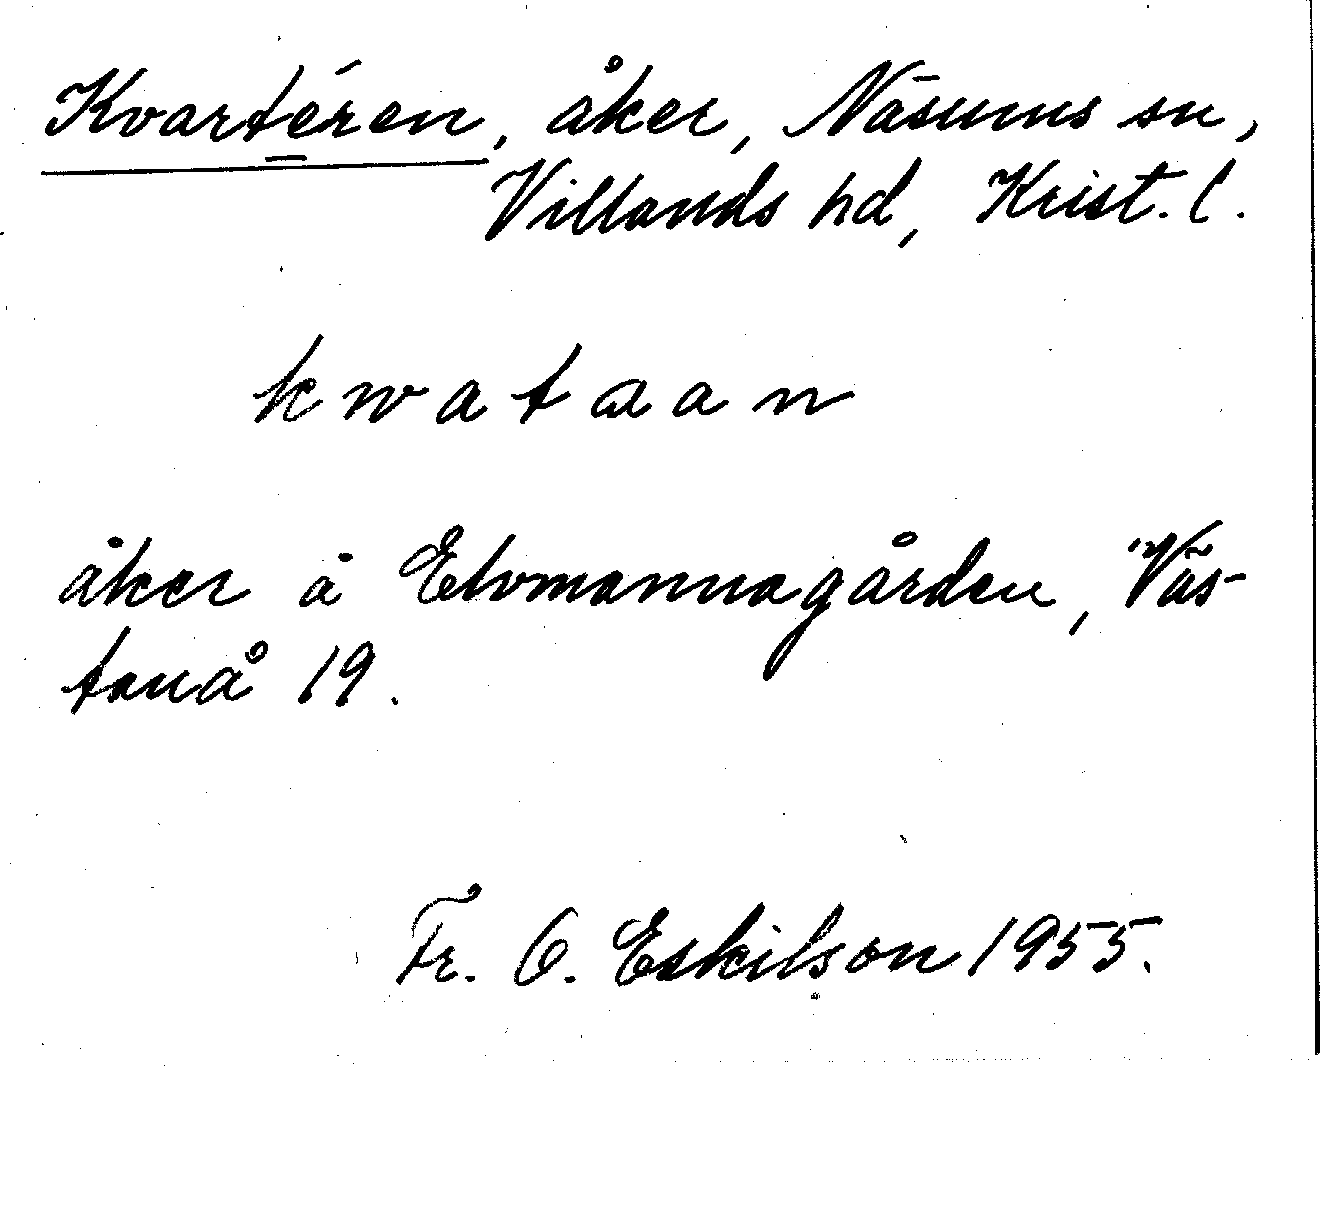 Kvartéren, åker, Näsums sn,
Villands hd, Krist. l.
kwataan
åker å Elvmannagården, Väs-
tanå 19.
Fr. O. Eskilson 1955.